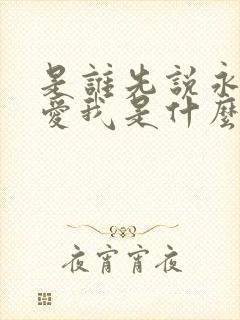 是誰先説永
愛我是什麼
夜宵宵夜